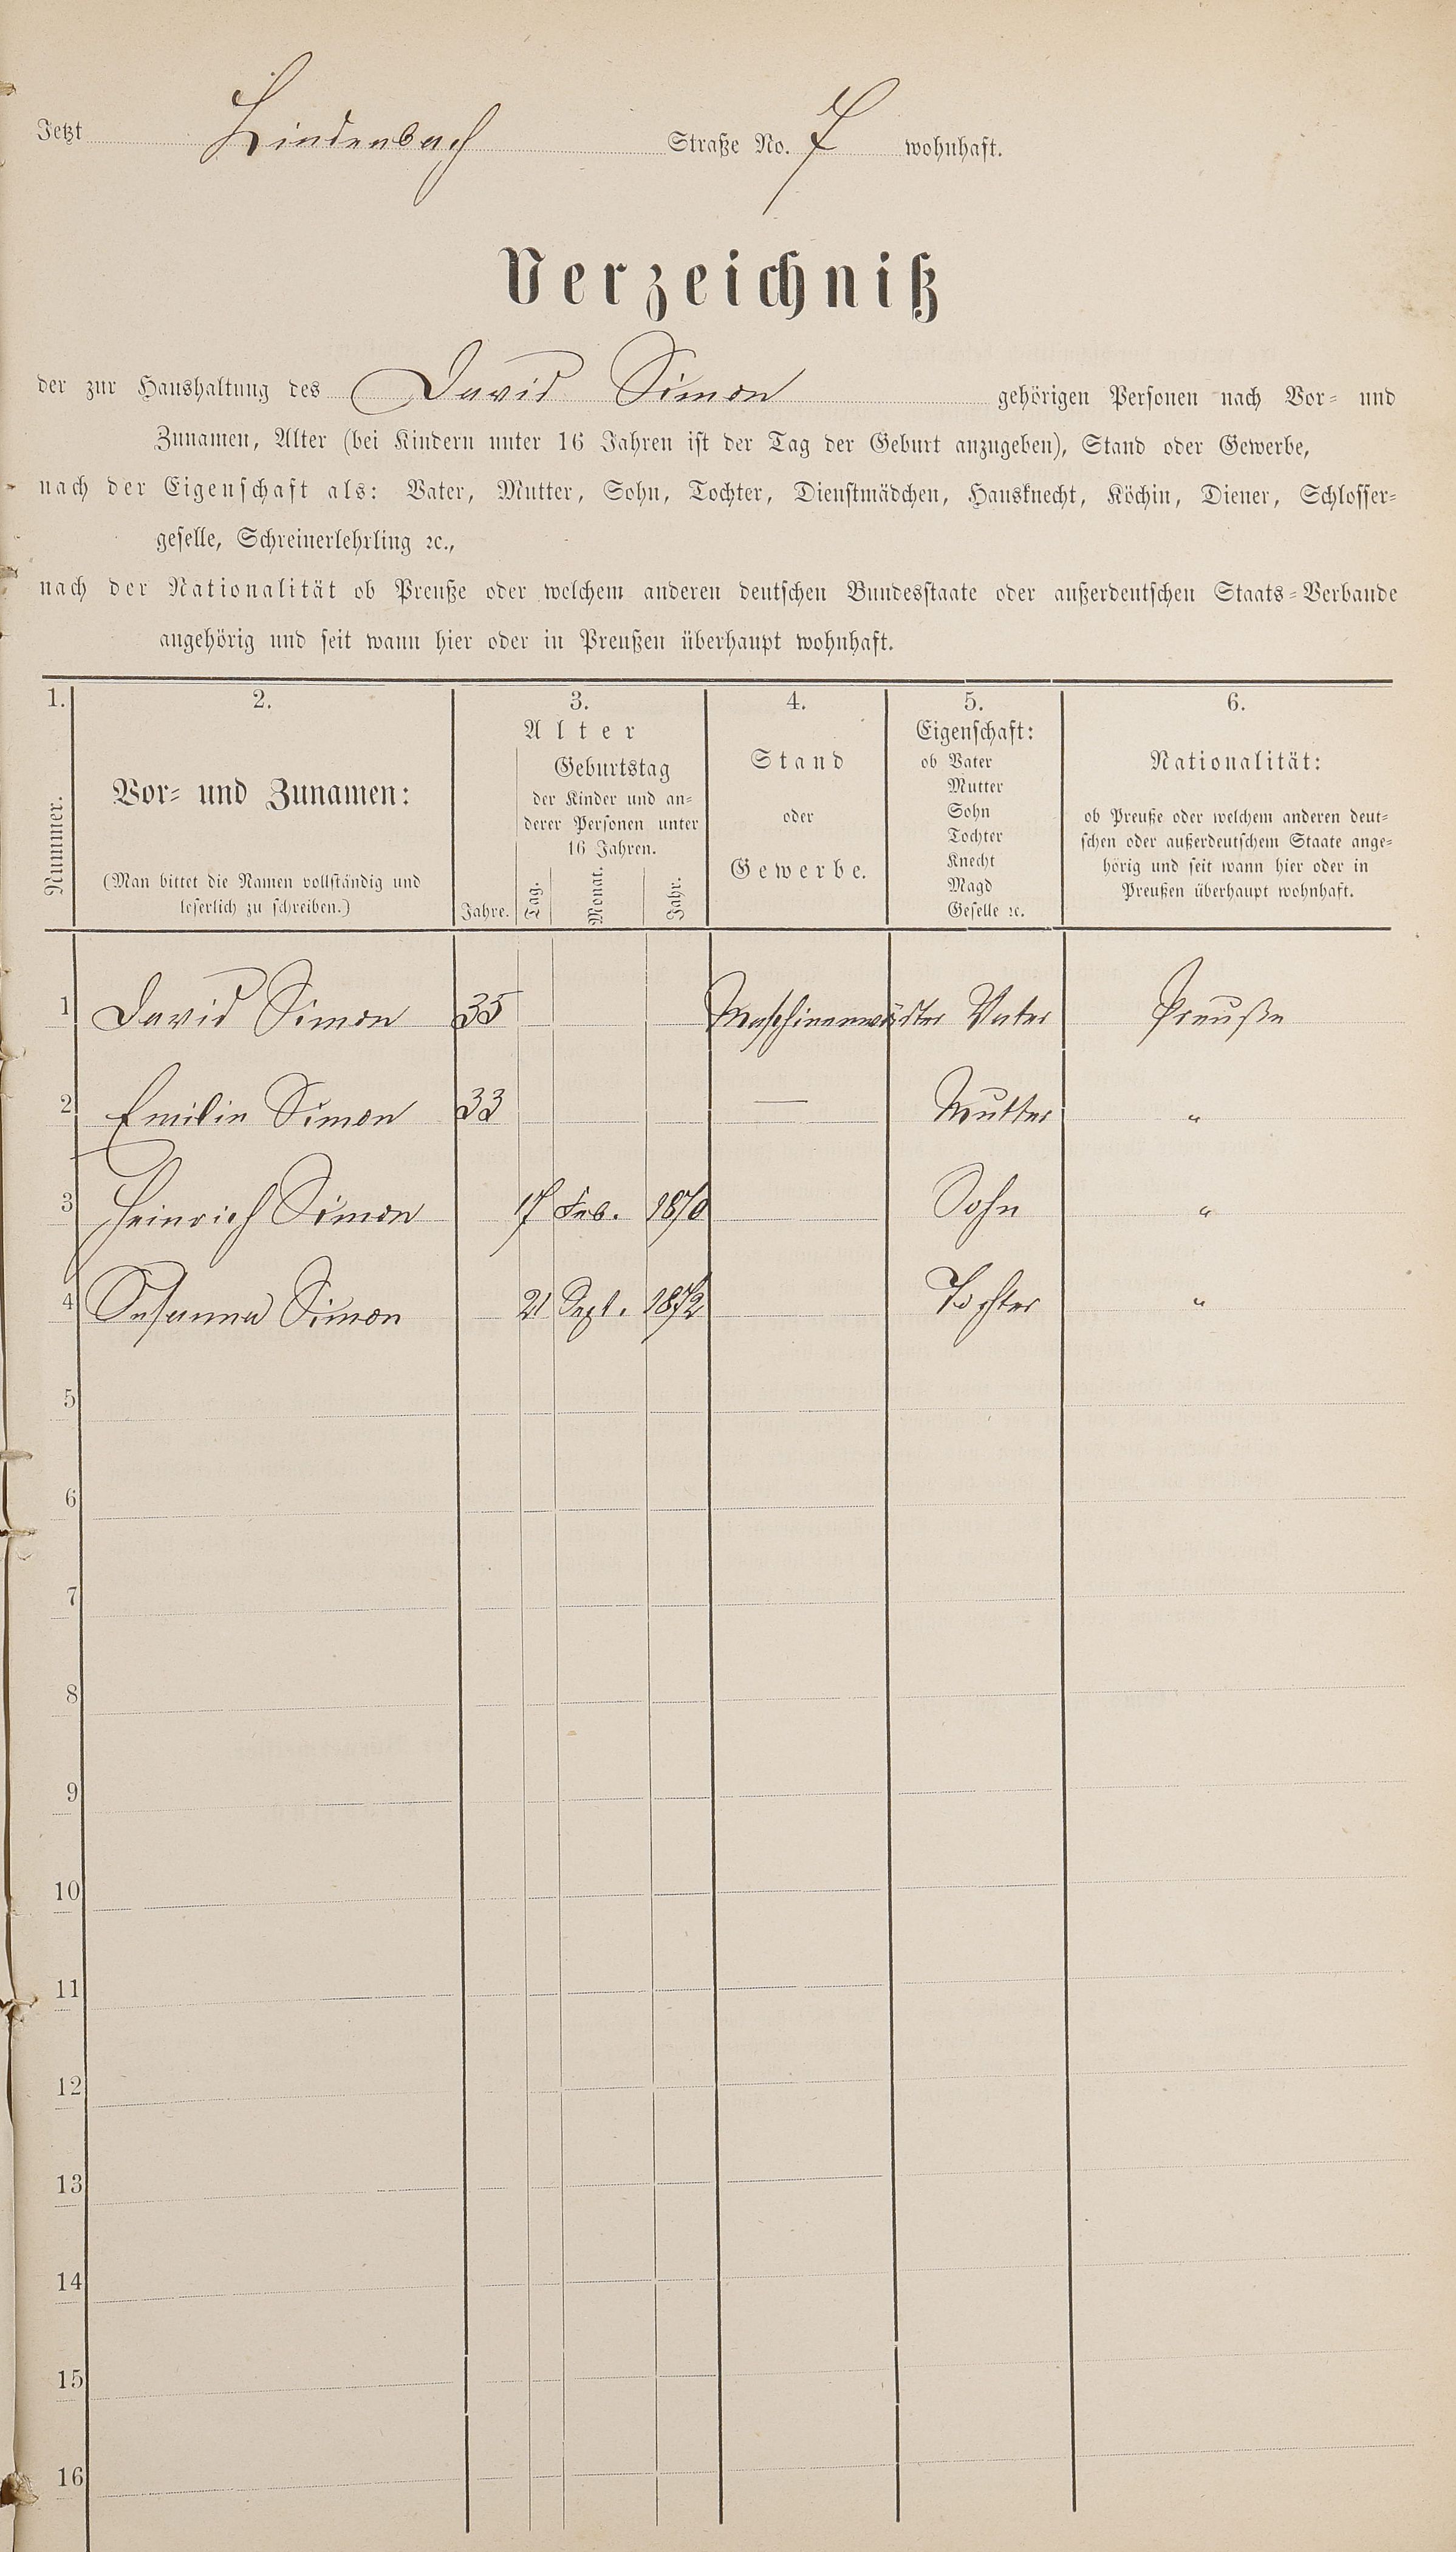 Jetzt Lindenbach Straße No. 7 wohnhaft.
Verzeichniß
der zur Haushaltung des David Simon gehörigen Personen nach Vor- und
Zunamen, Alter (bei Kindern unter 16 Jahren ist der Tag der Geburt anzugeben), Stand oder Gewerbe,
nach der Eigenschaft als: Vater, Mutter, Sohn, Tochter, Dienstmädchen, Hausknecht, Köchin, Diener, Schlosser-
geselle, Schreinerlehrling ꝛc.,
nach der Nationalität ob Preuße oder welchem anderen deutschen Bundesstaate oder außerdeutschen Staats-Verbande
angehörig und seit wann hier oder in Preußen überhaupt wohnhaft.
1.
Nummer.
2.
Vor- und Zunamen:
(Man bittet die Namen vollständig und
leserlich zu schreiben.)
3.
Alter
Jahre.
Geburtstag
der Kinder und an-
derer Personen unter
16 Jahren.
Tag.
Monat.
Jahr.
4.
Stand
oder
Gewerbe.
5.
Eigenschaft:
ob Vater
Mutter
Sohn
Tochter
Knecht
Magd
Geselle ꝛc.
6.
Nationalität:
ob Preuße oder welchem anderen deut-
schen oder außerdeutschem Staate ange-
hörig und seit wann hier oder in
Preußen überhaupt wohnhaft.
1 David Simon 35 Maschinenwärter Vater Preuße
2 Emilie Simon 33 — Mutter "
3 Heinrich Simon 17 Feb. 1870 Sohn "
4 Susanna Simon 21 Sept. 1872 Tochter "
5
6
7
8
9
10
11
12
13
14
15
16